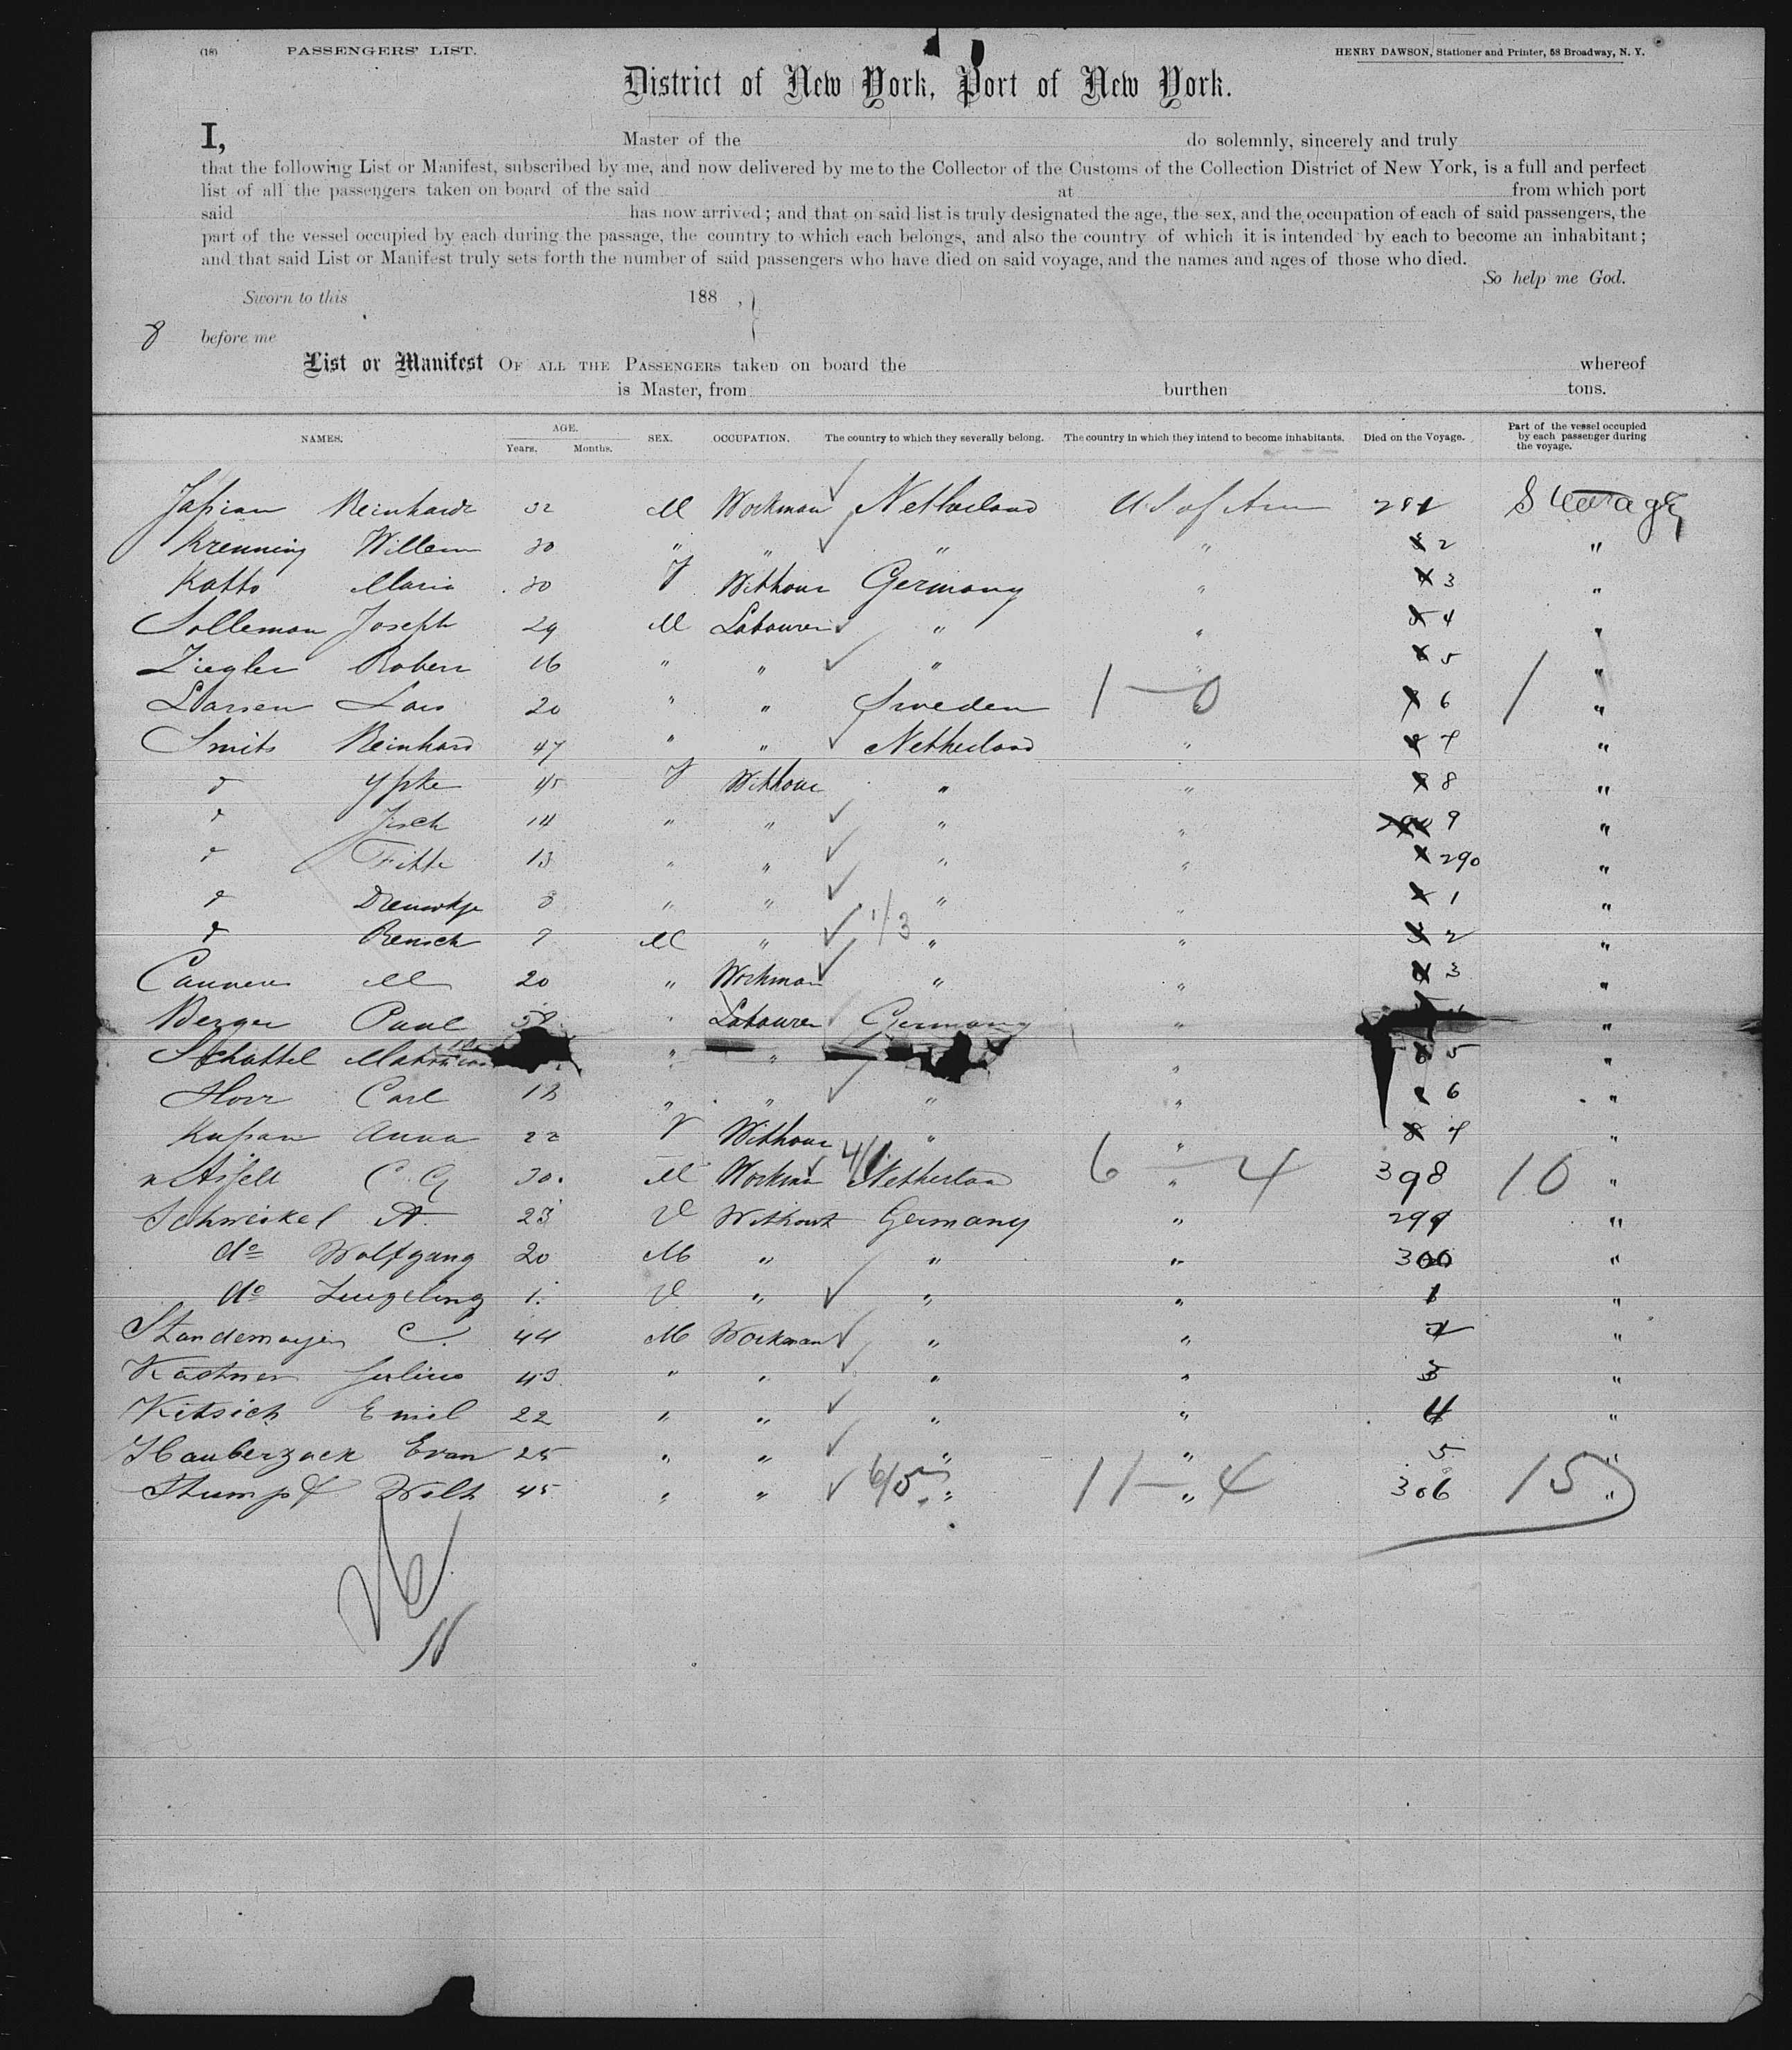 (18) PASSENGERS' LIST. HENRY DAWSON, Stationer and Printer, 58 Broadway, N. Y.
District of New York, Port of New York.
I, Master of the do solemnly, sincerely and truly
that the following List or Manifest, subscribed by me, and now delivered by me to the Collector of the Customs of the Collection District of New York, is a full and perfect
list of all the passengers taken on board of the said at from which port
said has now arrived; and that on said list is truly designated the age, the sex, and the occupation of each of said passengers, the
part of the vessel occupied by each during the passage, the country to which each belongs, and also the country of which it is intended by each to become an inhabitant;
and that said List or Manifest truly sets forth the number of said passengers who have died on said voyage, and the names and ages of those who died.
So help me God.
Sworn to this 188 ,
8 before me
List or Manifest OF ALL THE PASSENGERS taken on board the whereof
is Master, from burthen tons.
NAMES. AGE. Years. Months. SEX. OCCUPATION. The country to which they severally belong. The country in which they intend to become inhabitants. Died on the Voyage. Part of the vessel occupied by each passenger during the voyage.
Reinhardt 32 M Workman Netherland U S of Am 281 Steerage
Krenning Willem 30 " " " " 2 "
Katto Maria 30 Germany " 3 "
Solleman Joseph 29 M Labourer " " 4 "
Ziegler Robert 16 " " " " 5 "
Larsen Lars 20 " " Sweden 1 — 0 6 1 "
Smits Reinhard 47 " " Netherland " 7 "
Ypke 45 " " 8 "
14 " " " " 9 "
13 " " " " 290 "
8 " " " " 1 "
Rensch 7 M " 1/3 " " 2 "
M 20 " Workman " " 3 "
Berger Paul " Labourer Germany " "
Schattel " " " 5 "
Horr Carl " " " " 6 "
Anna 22 " " 7 "
C. G 30. M Workman 4/1 Netherland 6 — 4 398 10 "
Schweikel A. 23 V Without Germany " 299 "
do Wolfgang 20 M " " " 300 "
do 1. V " " " 1 "
C. 44 M Workman " " 2 "
Kastner Julius 43 " " " " 3 "
Kitsich Emil 22 " " " " 4 "
Hauberzack Evan 25 " " " " 5 "
Stumpf Wilh 45 " " 6/5 " 11 — 4 306 15 "